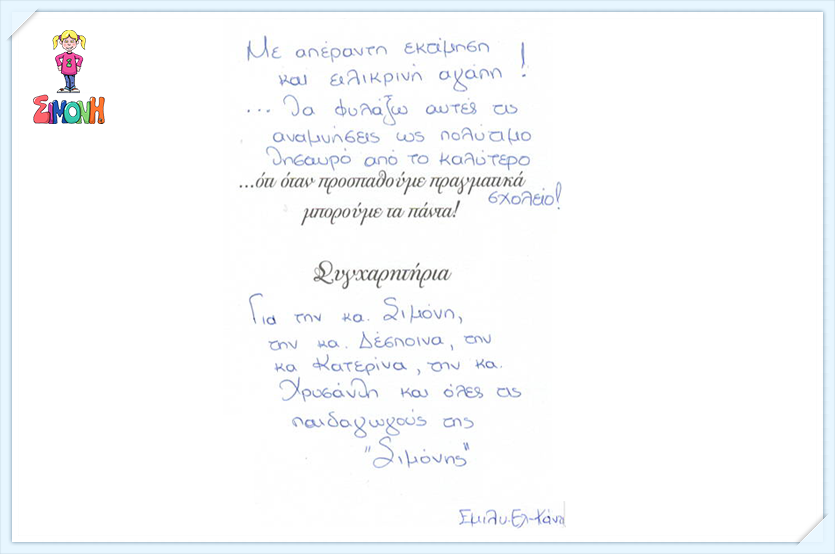 ΣΙΜΟΝΗ
Με απέραντη εκτίμηση
και ειλικρινή αγάπη !
... θα φυλάξω αυτές τις
αναμνήσεις ως πολύτιμο
θησαυρό από το καλύτερο
σχολείο!
...ότι όταν προσπαθούμε πραγματικά
μπορούμε τα πάντα!
Συγχαρητήρια
Για την κα. Σιμόνη,
την κα. Δέσποινα, την
κα Κατερίνα, την κα.
Χρυσάνθη και όλες τις
παιδαγωγούς της
"Σιμόνης"